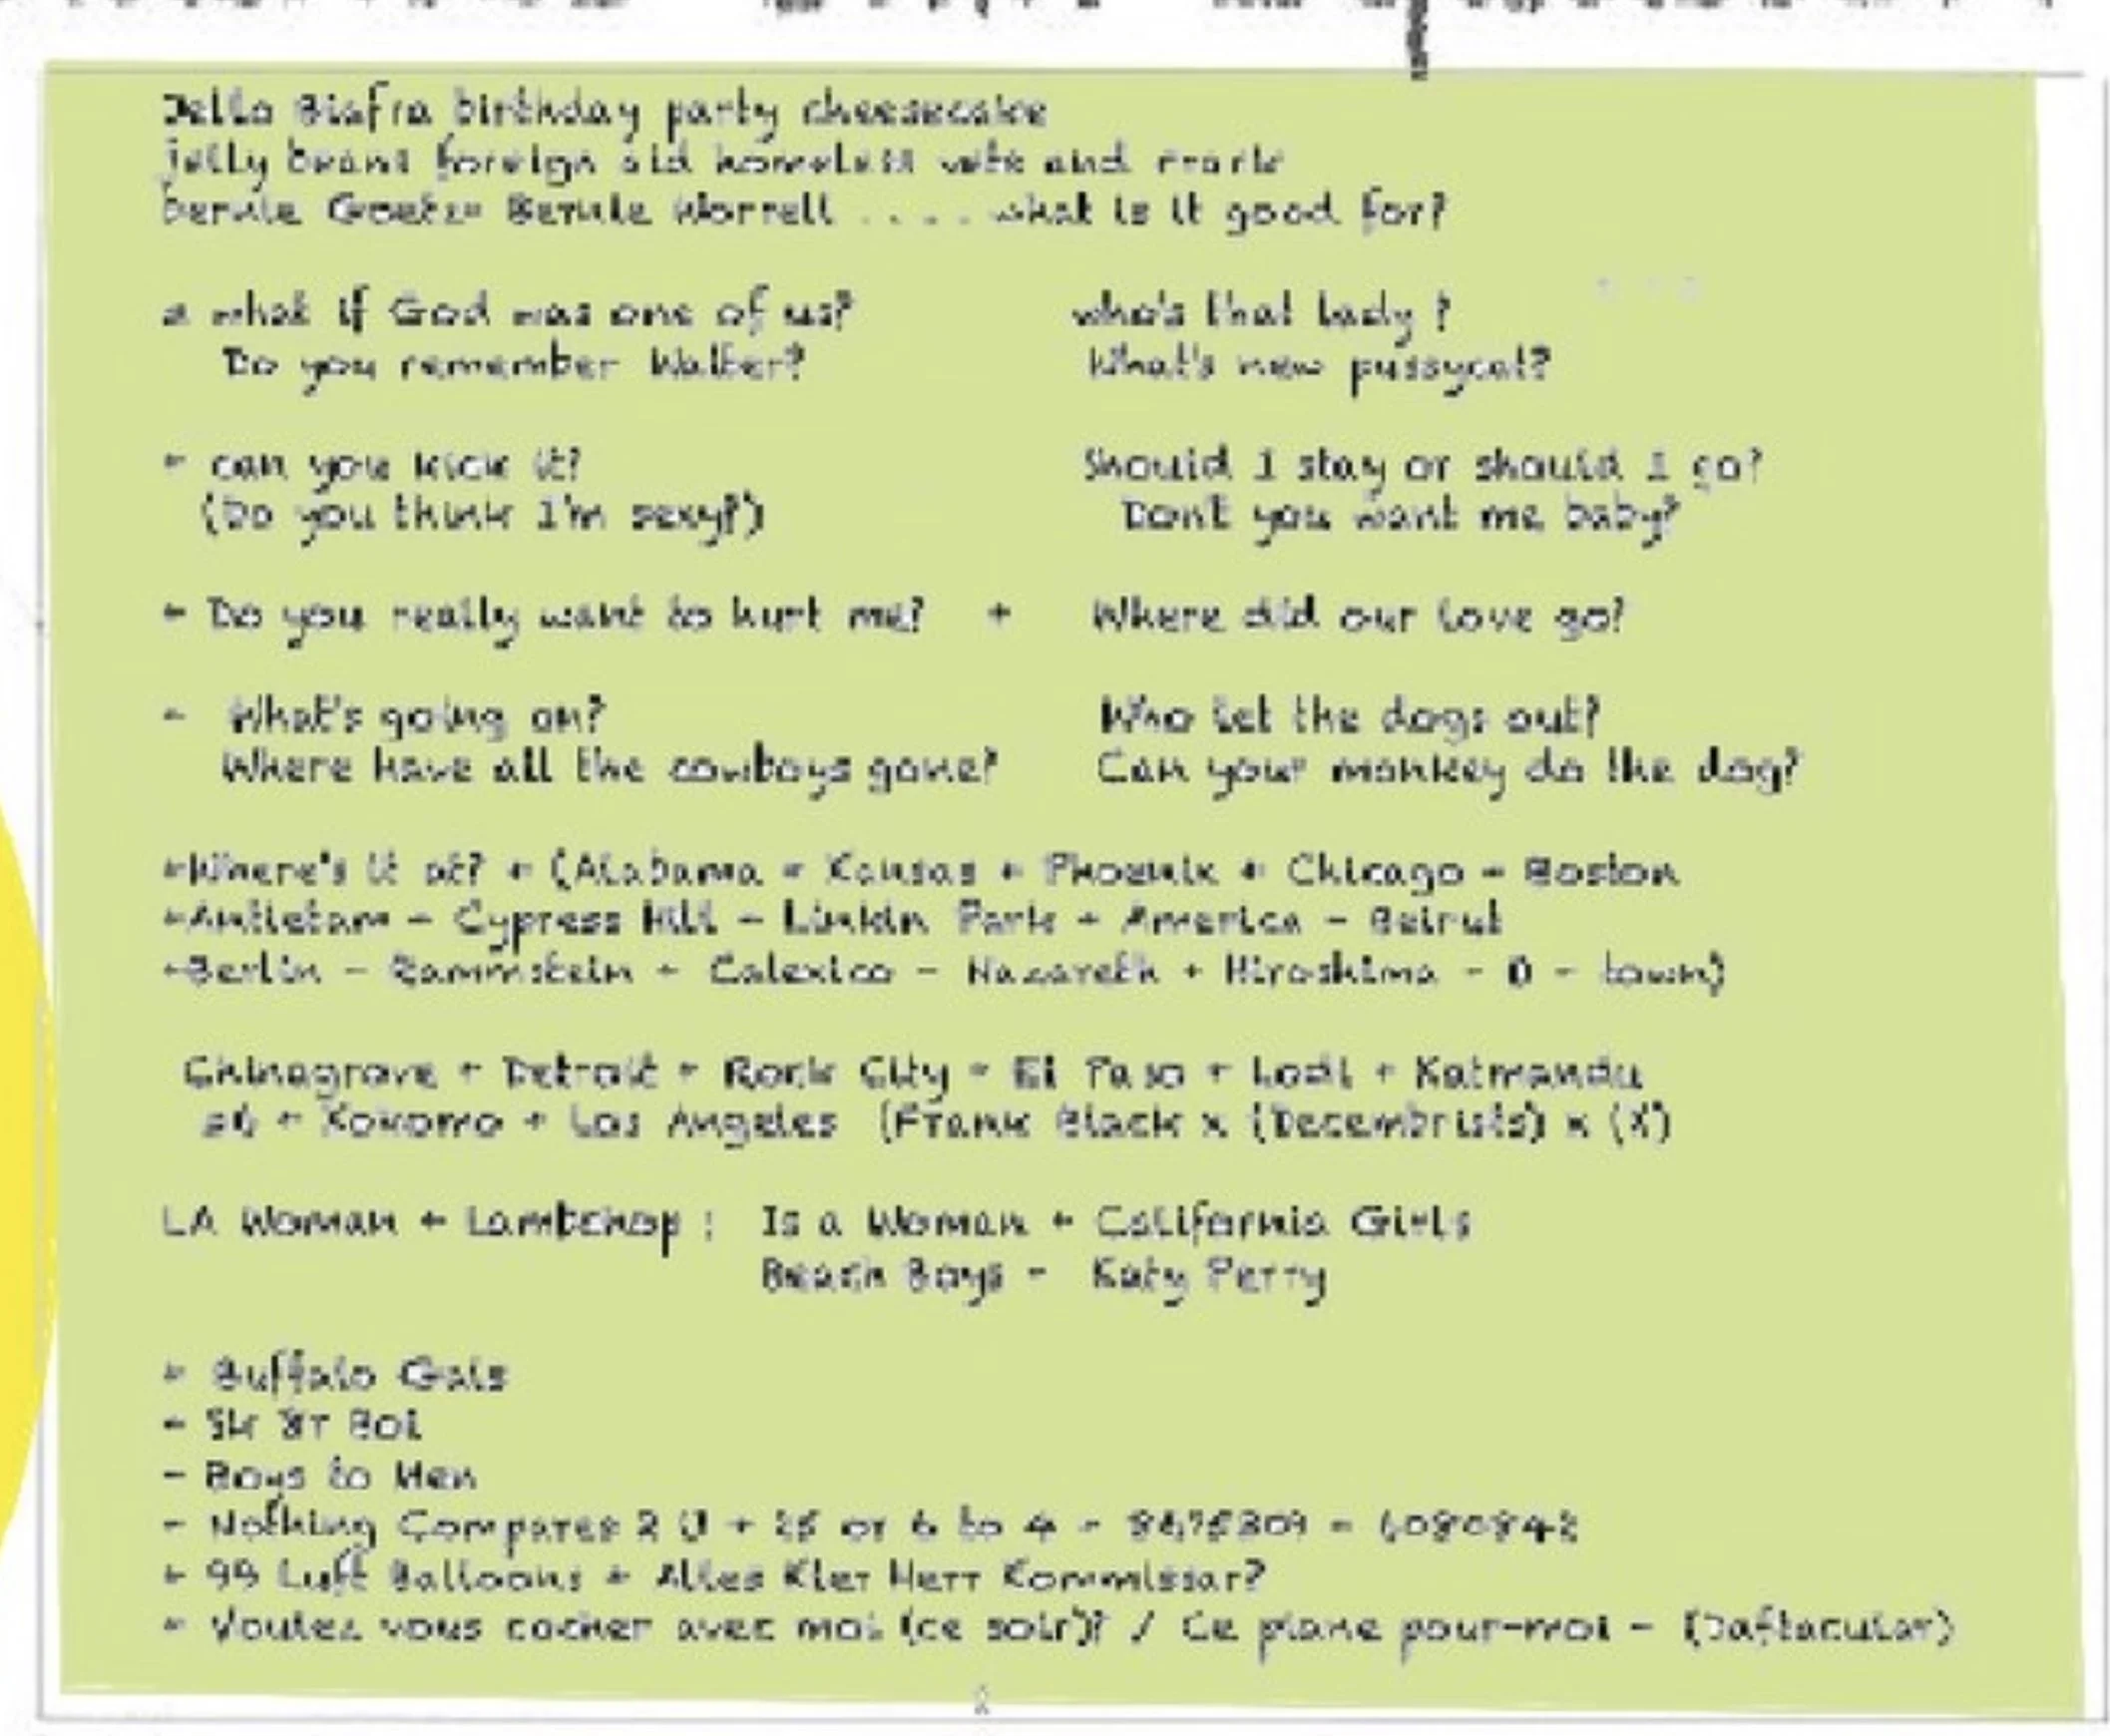 Jello Biafra birthday party cheesecake
jelly beans foreign aid homeless vets and
bernie Goetz Bernie Worrell .... what is it good for?
what if God was one of us? who's that lady ?
Do you remember Walter? What's new pussycat?
+ can you kick it? Should I stay or should I go?
(Do you think I'm sexy?) Don't you want me baby?
+ Do you really want to hurt me? + Where did our love go?
- What's going on? Who let the dogs out?
Where have all the cowboys gone? Can your monkey do the dog?
+Where's it at? + (Alabama + Kansas + Phoenix + Chicago - Boston
+Antietam - Cypress Hill - Linkin Park + America - Beirut
+Berlin - Rammstein + Calexico - Nazareth + Hiroshima - O - town)
Chinagrove + Detroit + Rock City - El Paso + Lodi + Katmandu
+ Kokomo + Los Angeles (Frank Black x (Decembrists) x (X)
LA Woman + Lambchop : Is a Woman + California Girls
Beach Boys - Katy Perry
+ Buffalo Gals
+ Sk 8r Boi
- Boys to Men
- Nothing Compares 2 U + 25 or 6 to 4 - 8675309 - 6080842
+ 99 Luft Balloons + Alles Klar Herr Kommissar?
+ Voulez vous cocher avec moi (ce soir)? / Ce plane pour-moi - (Daftacular)